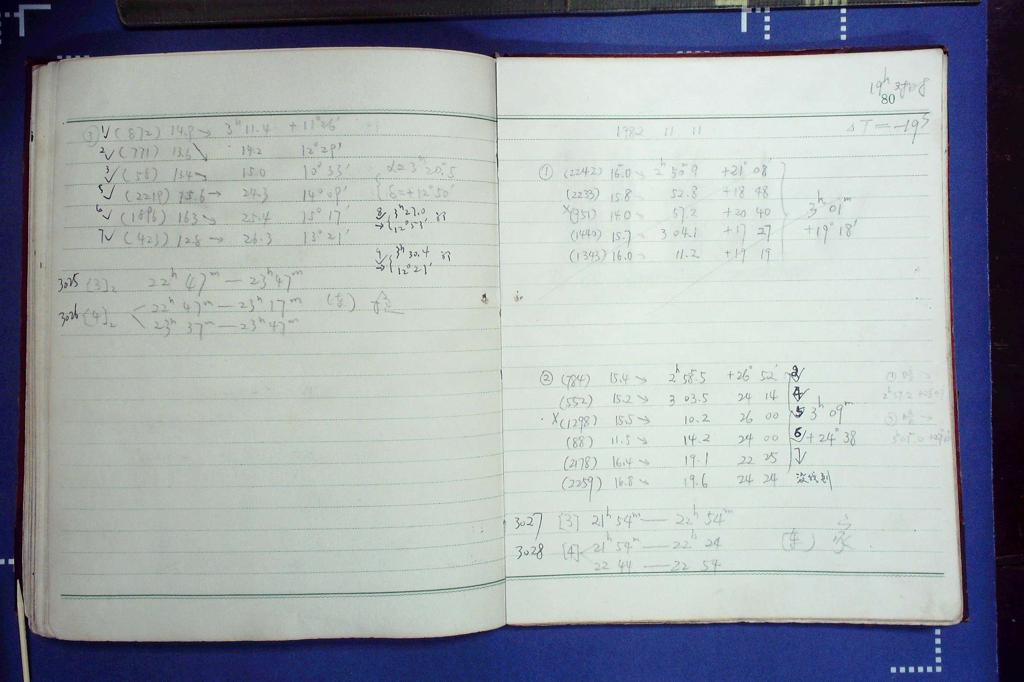 ① 1✓ (872) 14.9→ 3ʰ 11.4 +11°26′
2✓ (771) 13.6↘ 14.2 12°29′
3✓ (58) 13.4→ 15.0 10°33′
5✓ (2219) 15.6→ 24.3 14°09′
6✓ (1696) 16.3→ 25.4 15°17′
7✓ (423) 12.8→ 26.3 13°21′
α=3ʰ20ᵐ.5
δ=+12°50′
8✓ 3ʰ27.0
→ 12°53′
9✓ 3ʰ30.4
→ 12°21′
3025 [3]₂ 22ʰ47ᵐ—23ʰ47ᵐ
3026 [4]₂ 22ʰ47ᵐ—23ʰ17ᵐ
23ʰ37ᵐ—23ʰ47ᵐ
80
ΔT=-19ˢ
1982 11 11
① (2242) 16.0→ 2ʰ50ᵐ.9 +21°08′
(2233) 15.8 52.8 +18 48
×(951) 14.0 57.2 +20 40
(1440) 15.7→ 3 04.1 +17 27
(1343) 16.0→ 11.2 +19 19
3ʰ01ᵐ
+19°18′
② (784) 15.4→ 2ʰ58.5 +26°52′ 3✓
(552) 15.2→ 3 03.5 24 14 4✓
×(1298) 15.5→ 10.2 26 00 5
(88) 11.5→ 14.2 24 00 6✓
(2178) 16.4→ 19.1 22 25 7✓
(2259) 16.8→ 19.6 24 24 没找到
3ʰ09ᵐ
+24°38
3027 [3] 21ʰ54ᵐ—22ʰ54ᵐ
3028 [4] 21ʰ54ᵐ—22ʰ24
22 44—22 54